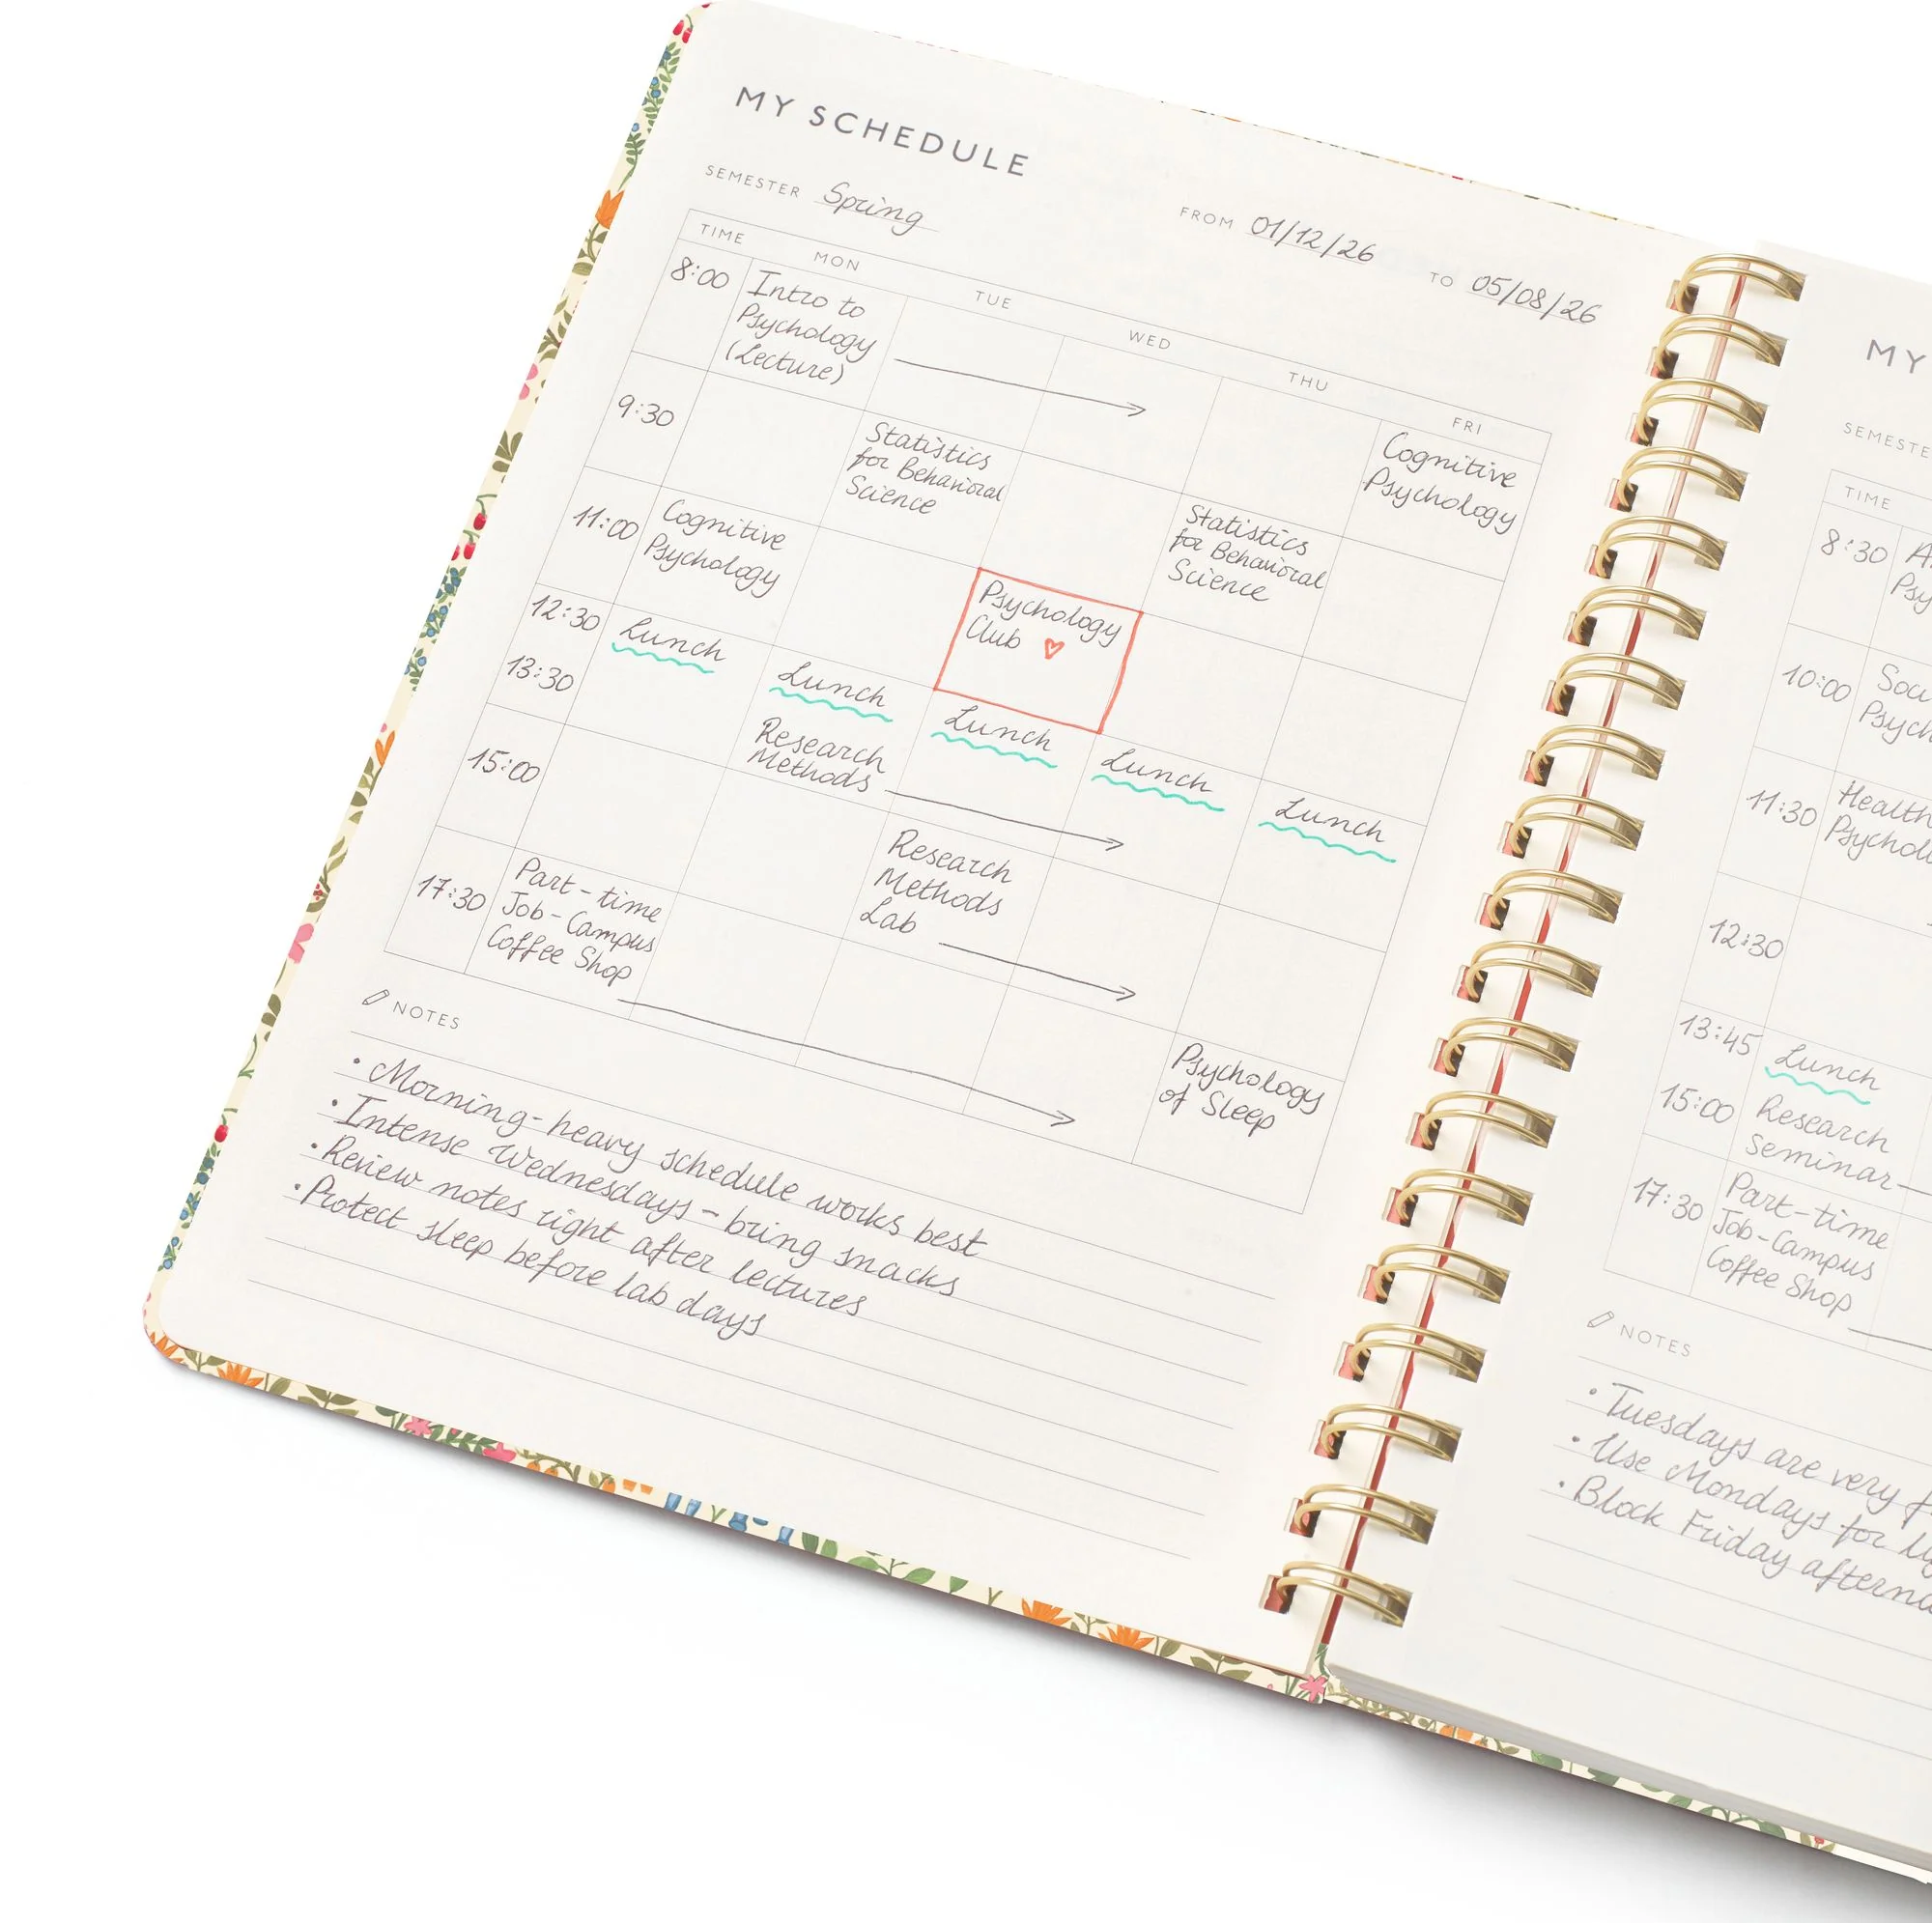 MY SCHEDULE
SEMESTER Spring
FROM 01/12/26
TO 05/08/26
TIME MON TUE WED THU FRI
8:00
Intro to
Psychology
(Lecture)
Cognitive
Psychology
9:30
Statistics
for Behavioral
Science
Statistics
for Behavioral
Science
11:00
Cognitive
Psychology
Psychology
Club
12:30
Lunch
Lunch
Lunch
Lunch
Lunch
13:30
Research
Methods
15:00
Research
Methods
Lab
17:30
Part-time
Job-Campus
Coffee Shop
Psychology
of Sleep
NOTES
• Morning-heavy schedule works best
• Intense Wednesdays - bring snacks
• Review notes right after lectures
• Protect sleep before lab days
MY
SEMESTE
TIME
8:30
Psy
10:00
Soci
Psych
11:30
Health
Psychol
12:30
13:45
Lunch
15:00
Research
Seminar
17:30
Part-time
Job-Campus
Coffee Shop
NOTES
• Tuesdays are very
• Use Mondays for
• Block Friday afterno